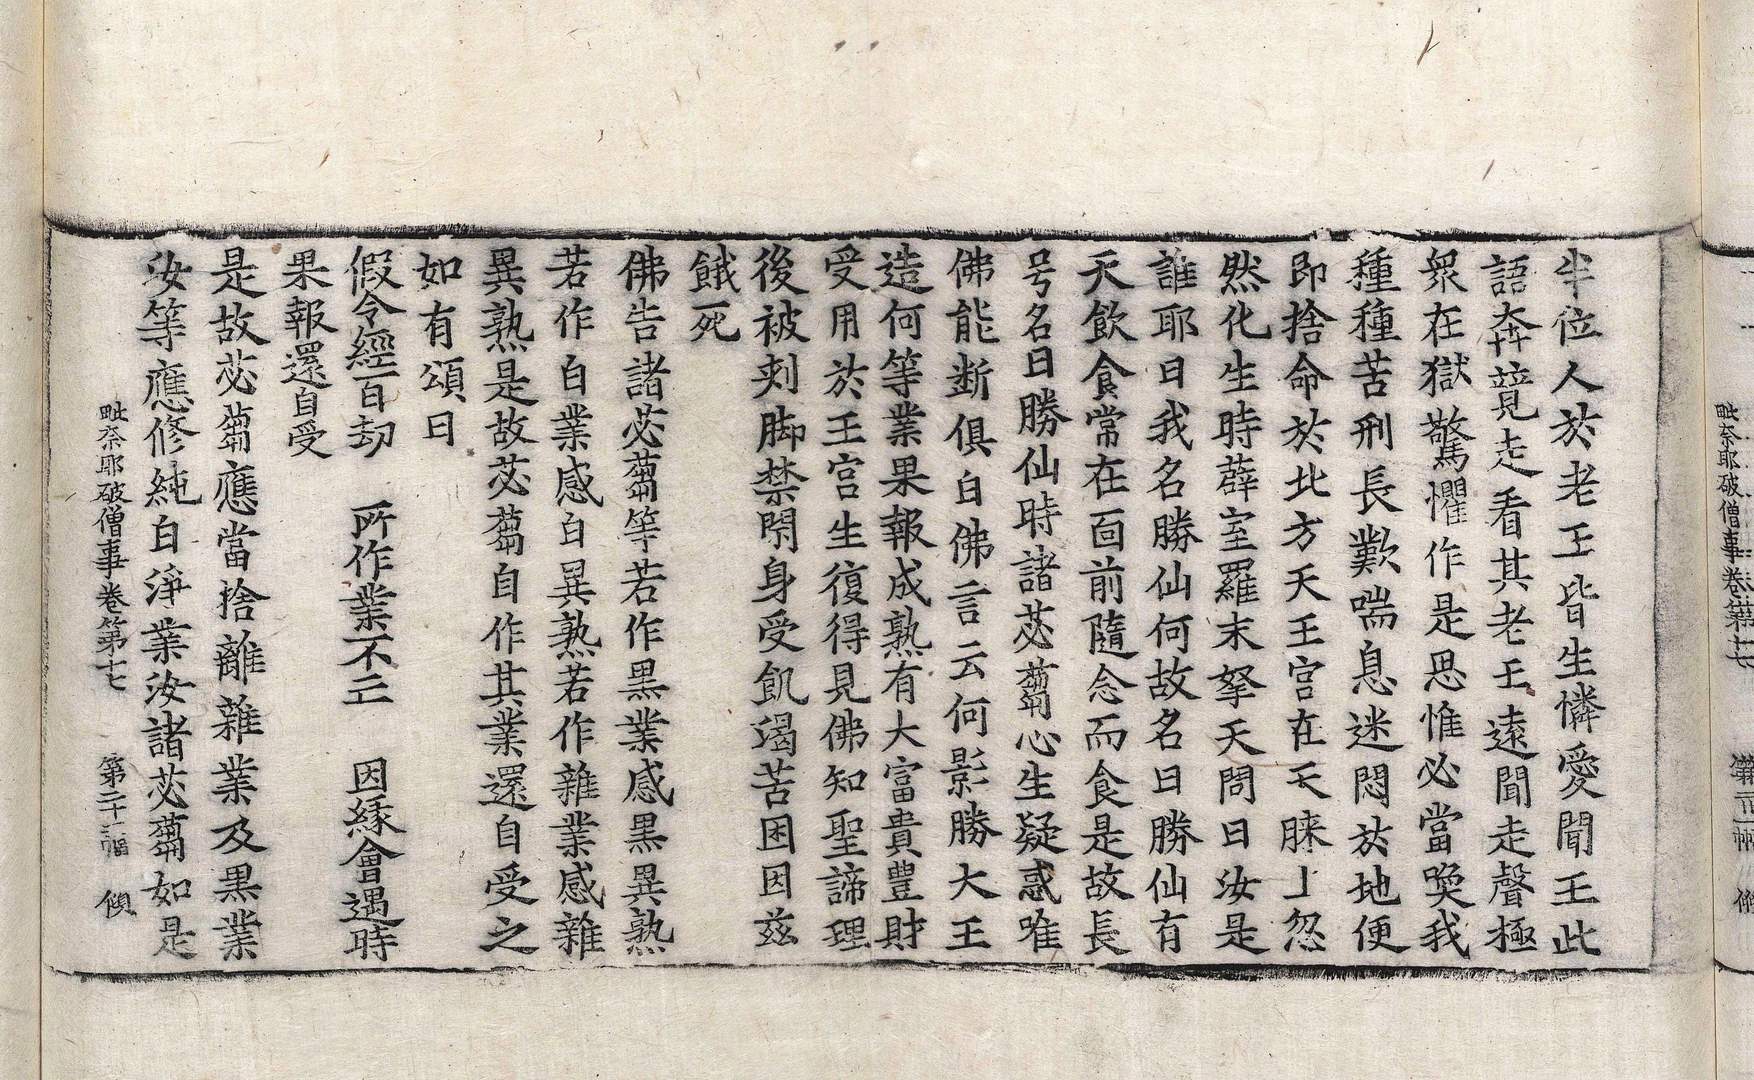 半位人於老王皆生憐愛聞王此
語奔竸走看其老王遠聞走聲極
衆在獄驚懼作是思惟必當喚我
種種苦刑長歎喘息迷悶於地便
即捨命於北方天王宮在天上忽
然化生時薜室羅末拏天問曰汝是
誰耶曰我名勝仙何故名曰勝仙有
天飲食常在面前隨念而食是故長
号名曰勝仙時諸苾蒭心生疑惑唯
佛能断俱白佛言云何影勝大王
造何等業果報成熟有大富貴豊財
受用於王宮生復得見佛知聖諦理
後被刾脚禁閇身受飢渴苦困因兹
餓死
佛告諸苾蒭等若作黒業感黒異熟
若作白業感白異熟若作雜業感雜
異熟是故苾蒭自作其業還自受之
如有頌曰
假令經百劫　所作業不亡　因緣會遇時
果報還自受
是故苾蒭應當捨離雜業及黒業
汝等應修純白淨業汝諸苾蒭如是
毗奈耶破僧事卷第十七　第二十二幅　傾